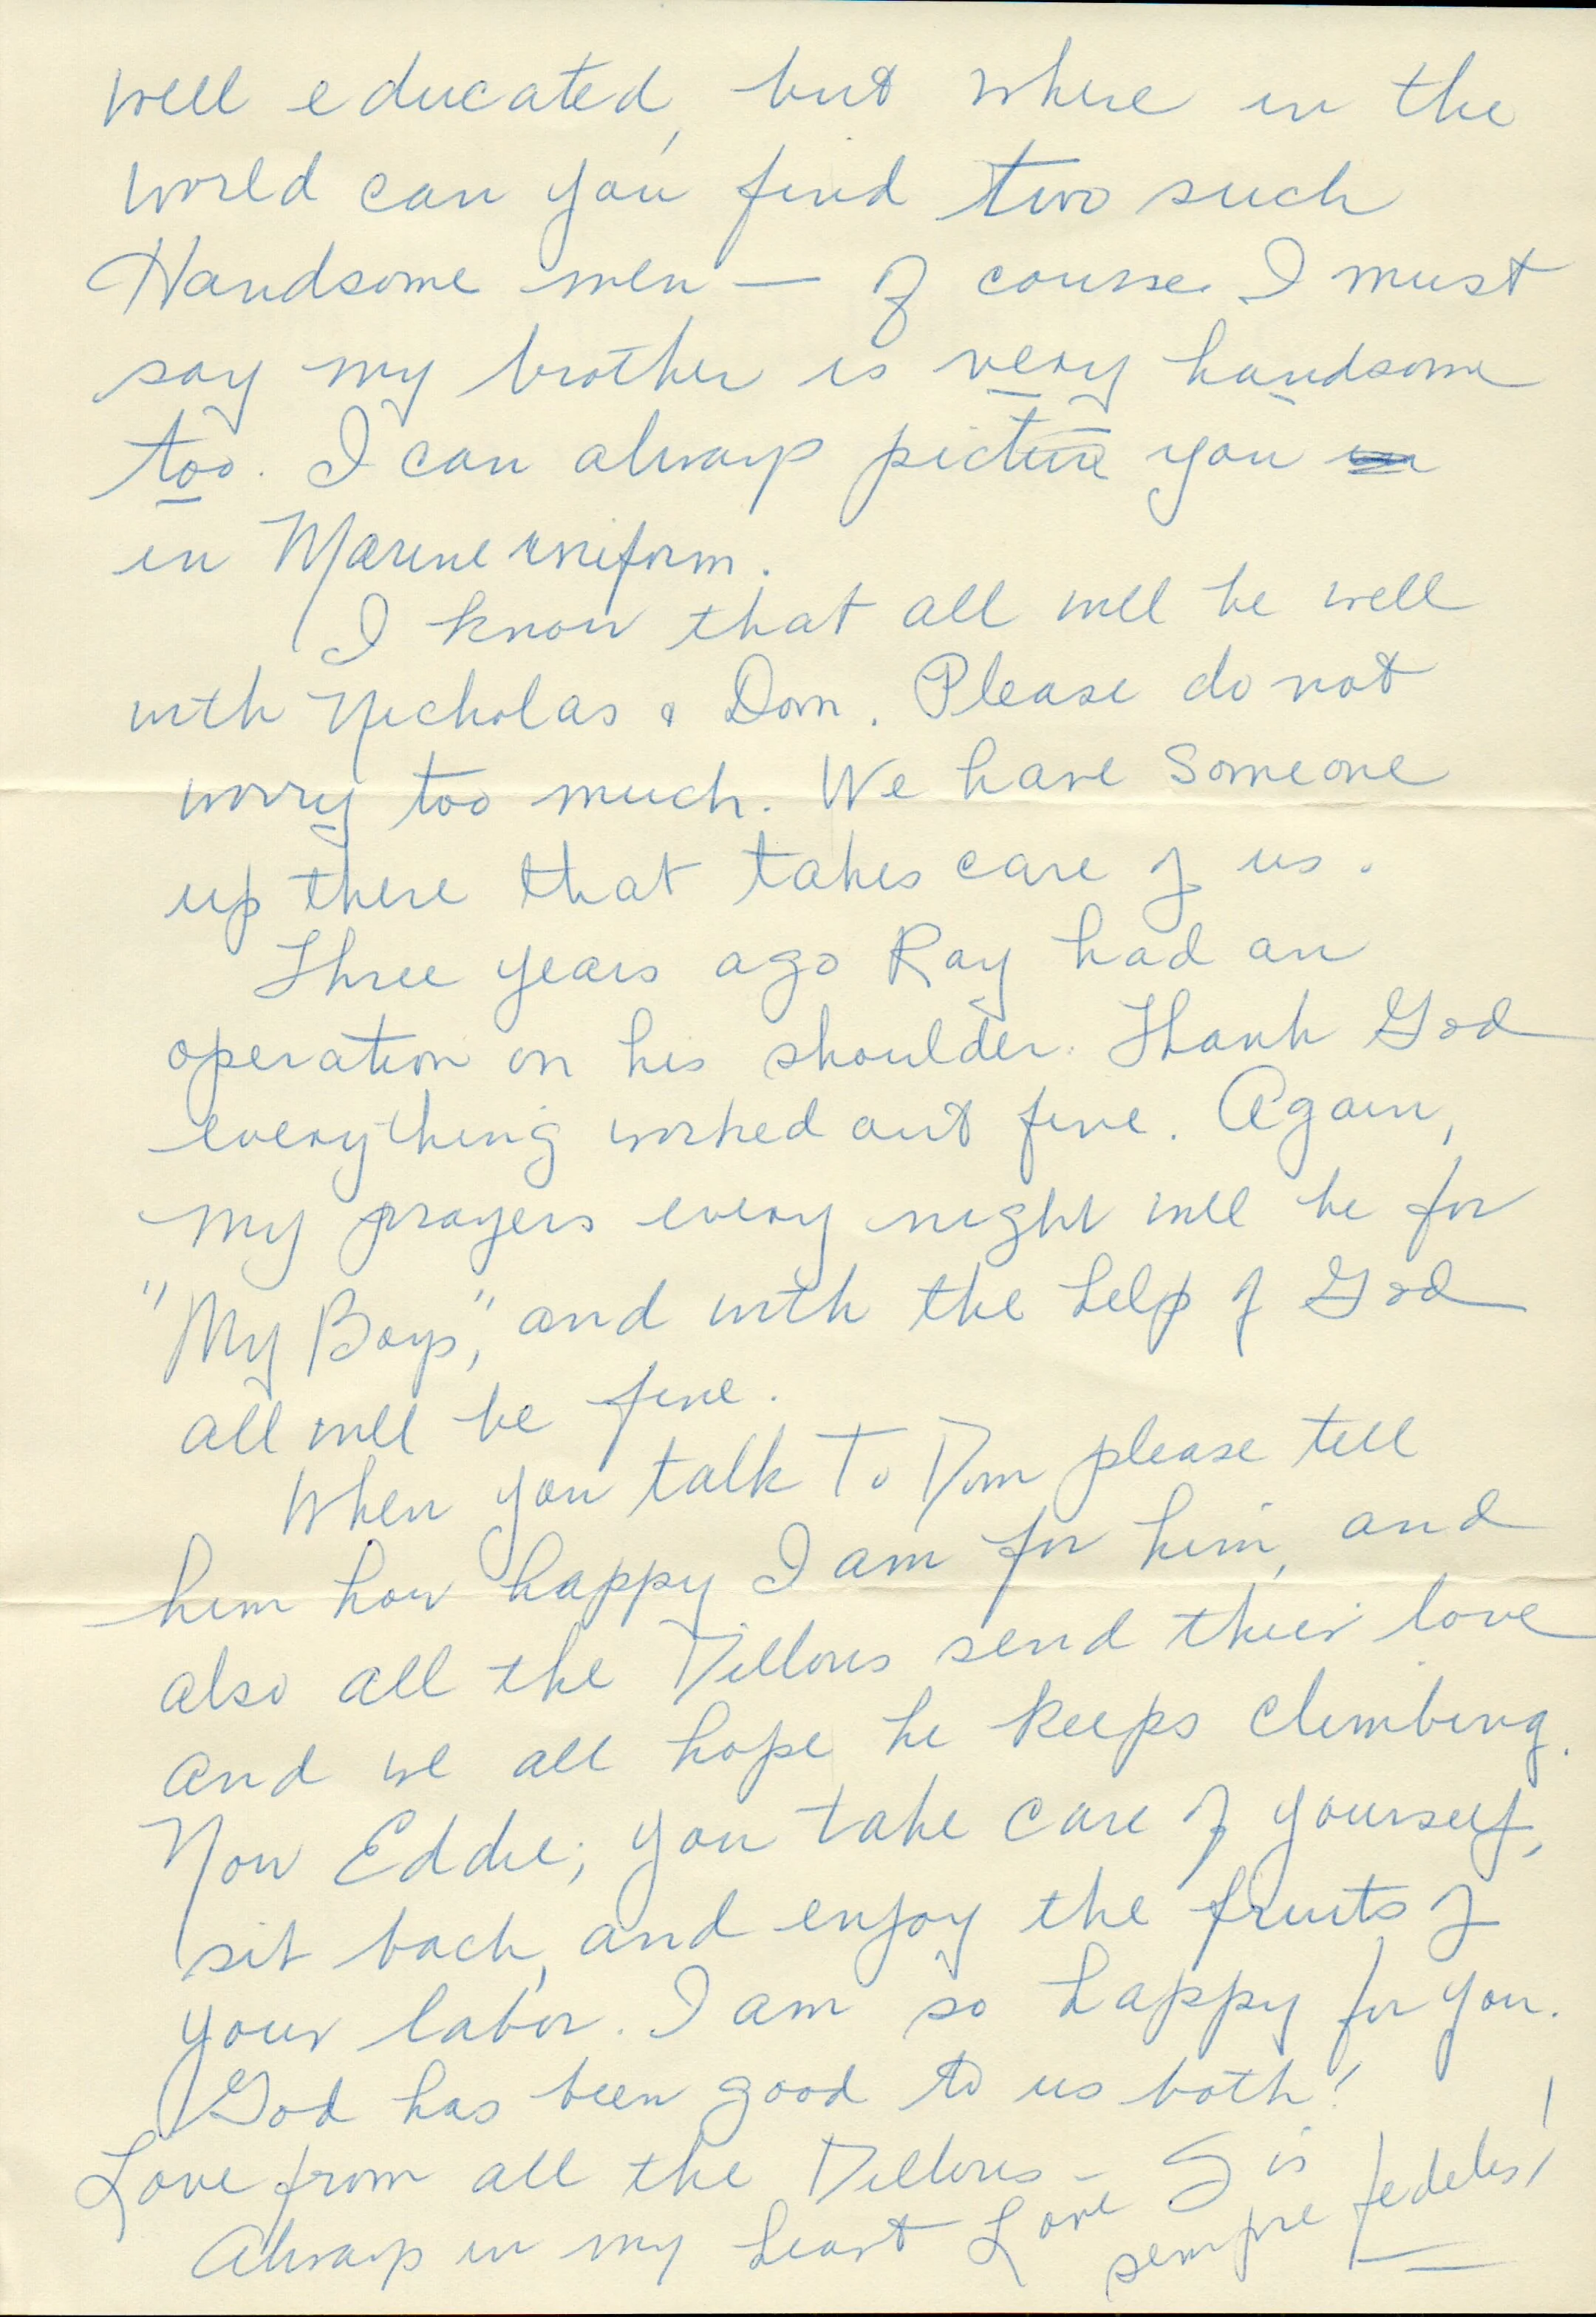 well educated, but where in the
world can you find two such
Handsome men — of course I must
say my brother is very handsome
too. I can always picture you
in Marine uniform.
I know that all will be well
with Nicholas & Dom. Please do not
worry too much. We have someone
up there that takes care of us.
Three years ago Ray had an
operation on his shoulder. Thank God
everything worked out fine. Again,
my prayers every night will be for
"My Boys," and with the help of God
all will be fine.
When you talk To Dom please tell
him how happy I am for him, and
also all the Dillons send thier love
and we all hope he keeps climbing.
Now Eddie; you take care of yourself,
sit back, and enjoy the fruits of
your labor. I am so happy for you.
God has been good to us both!
Love from all the Dillons – Sis
Always in my heart Love
sempre fedeles!